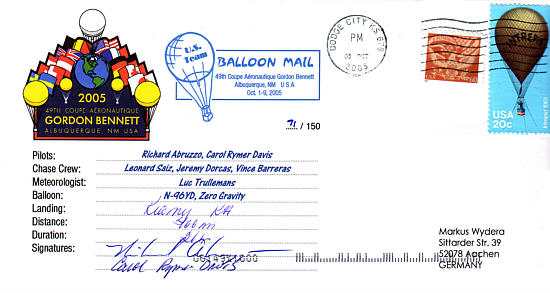 2005
49TH COUPE AÉRONAUTIQUE
GORDON BENNETT
ALBUQUERQUE, NM USA
U.S.
Team
BALLOON MAIL
49th Coupe Aéronautique Gordon Bennett
Albuquerque, NM U S A
Oct. 1-9, 2005
/ 150
DODGE CITY KS 678
PM
03 OCT
2005
INTREPID
USA
20c
Pilots: Richard Abruzzo, Carol Rymer Davis
Chase Crew: Leonard Saiz, Jeremy Dorcas, Vince Barreras
Meteorologist: Luc Trullemans
Balloon: N-96YD, Zero Gravity
Landing:
Distance:
Duration:
Signatures:
Carol Rymer Davis
Markus Wydera
Sittarder Str. 39
52078 Aachen
GERMANY